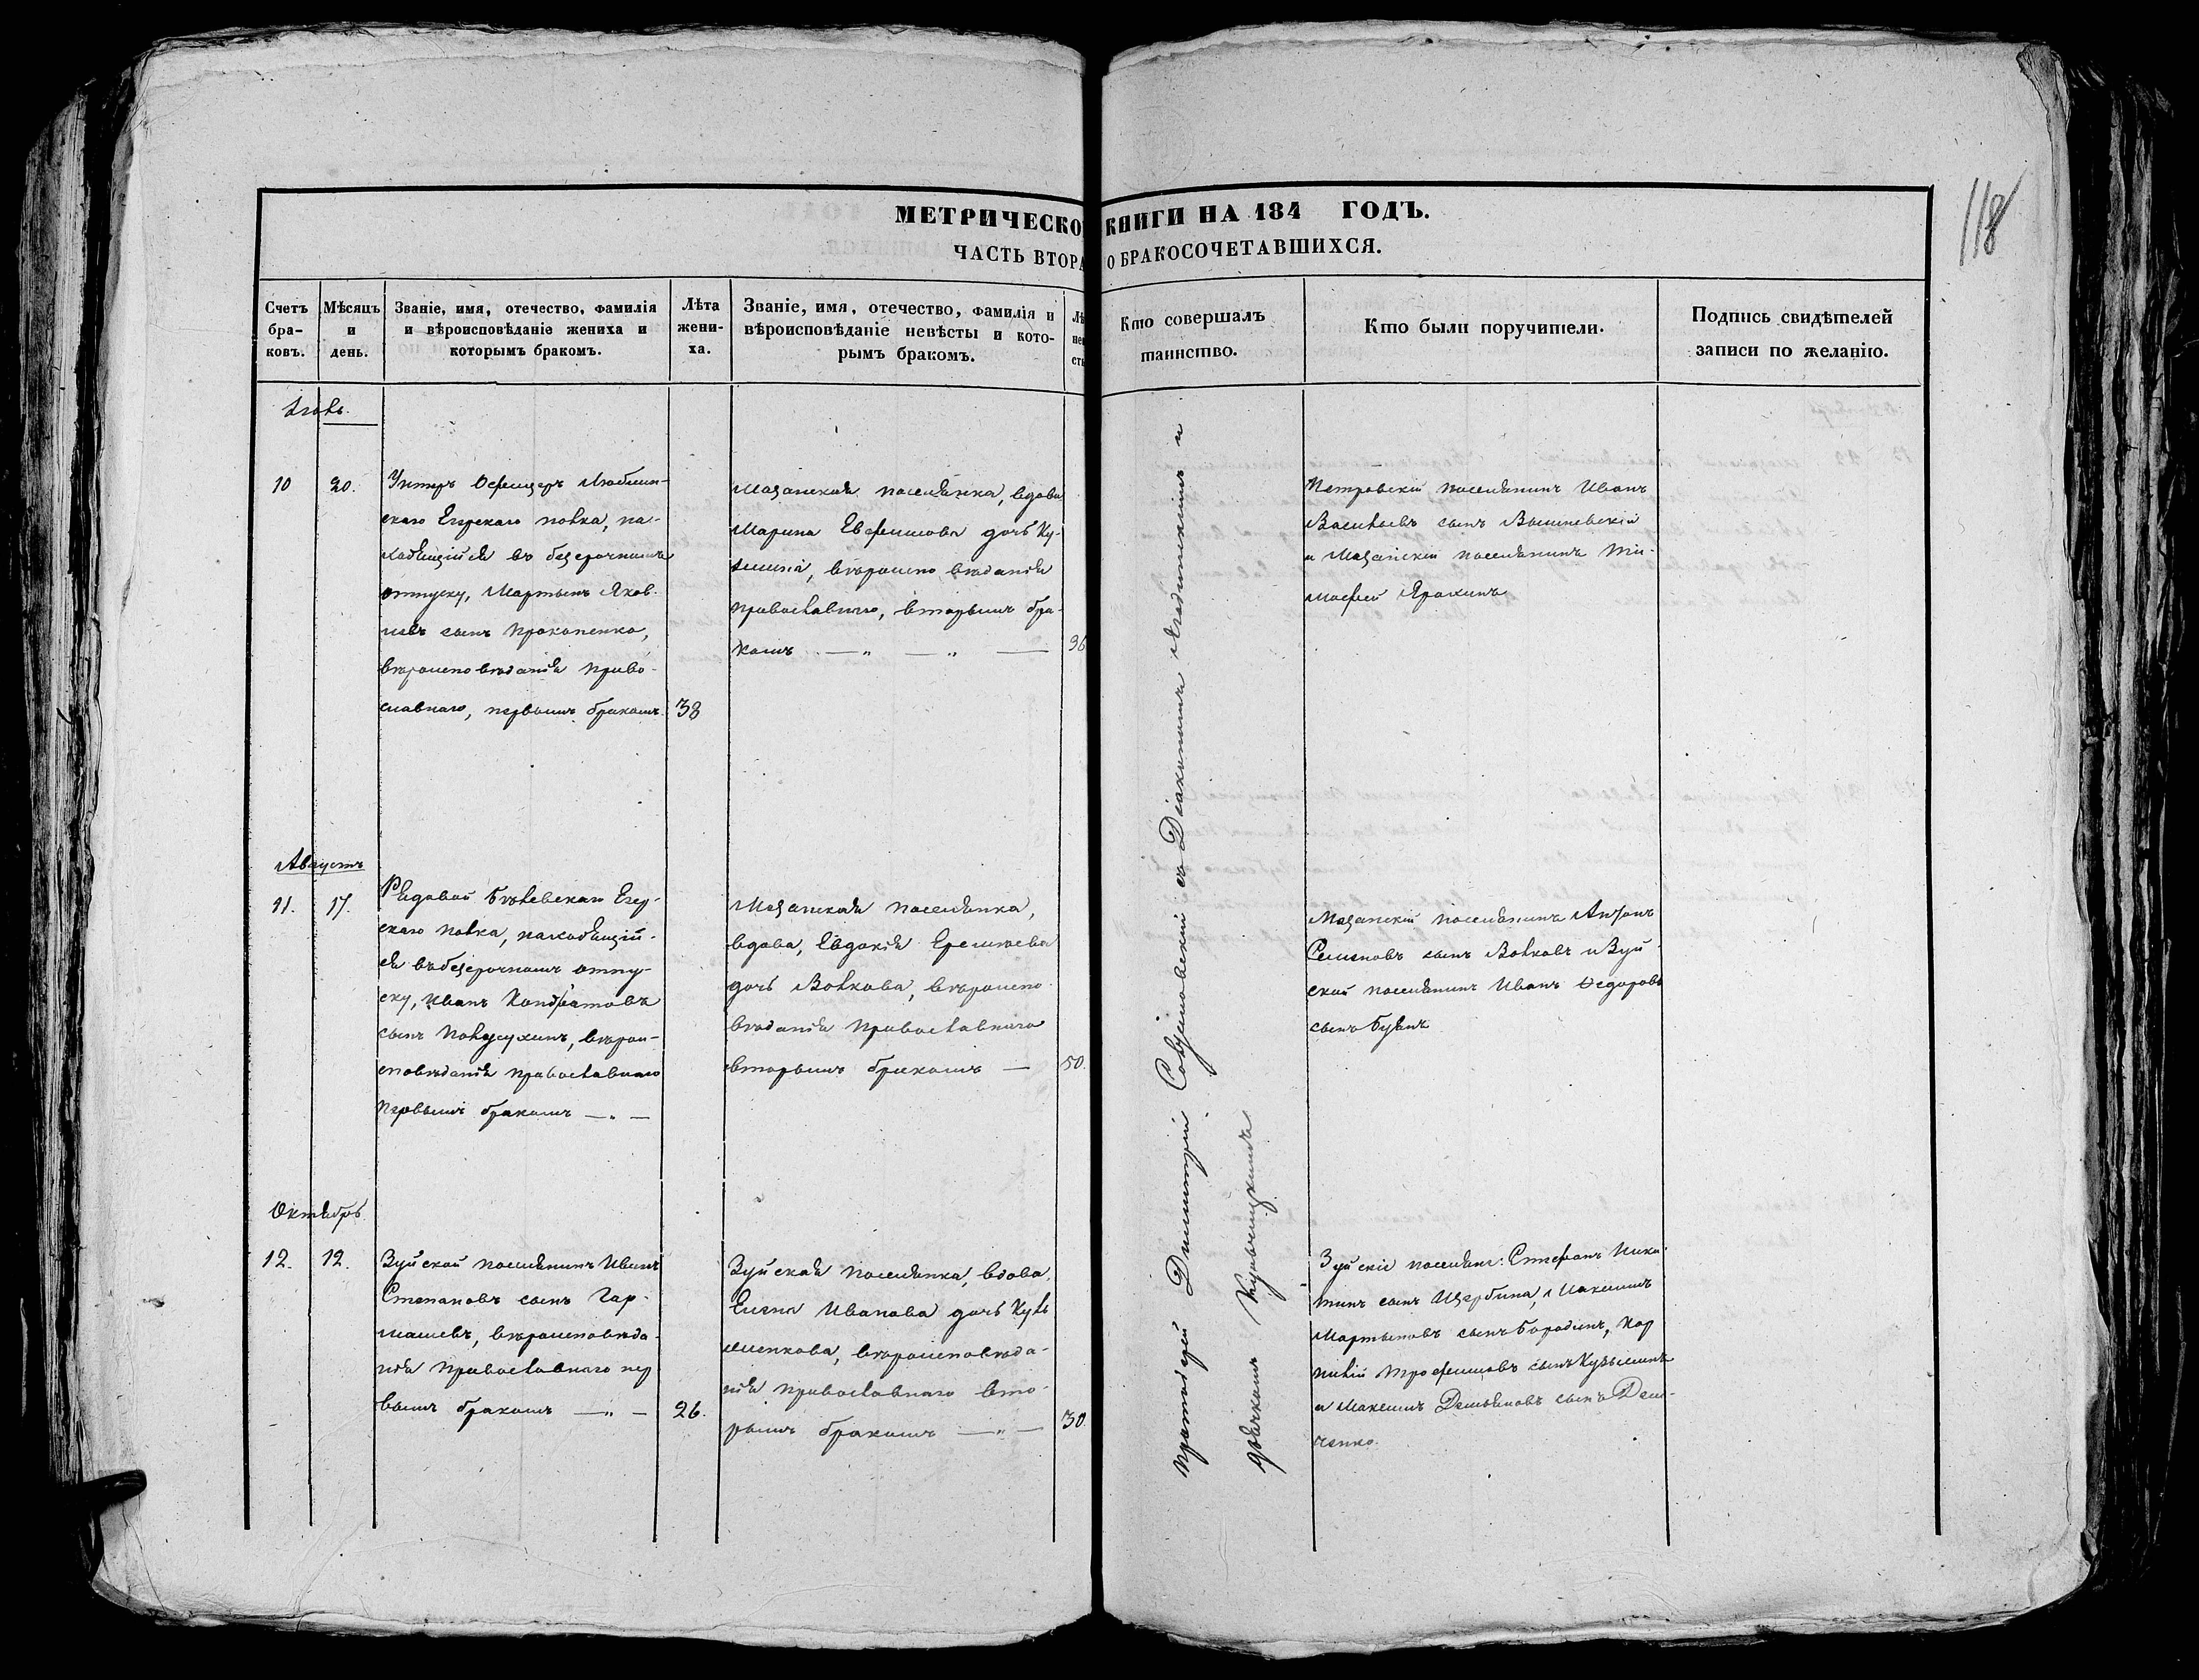 118
МЕТРИЧЕСКО КНИГИ НА 184 ГОДЪ.
ЧАСТЬ ВТОРА О БРАКОСОЧЕТАВШИХСЯ.
Счетъ бра- ковъ.
Мѣсяцъ и день.
Званіе, имя, отечество, фамилія и вѣроисповѣданіе жениха и которымъ бракомъ.
Лѣта жени- ха.
Званіе, имя, отечество, фамилія и вѣроисповѣданіе невѣсты и кото- рымъ бракомъ.
Лѣ не сть
Кто совершалъ таинство.
Кто были поручители.
Подпись свидѣтелей записи по желанію.
10
20.
Унтеръ Офицеръ Люблин-
скаго Егерскаго полка, на-
ходящійся въ безсрочномъ
отпуску, Мартынъ Яков-
левъ сынъ Прокопенко,
вѣроисповѣданія право-
славнаго, первымъ бракомъ.
38
Мазанская поселянка, вдова
Марина Евфимова дочь Ку-
вѣроиспо вѣданія
православнаго, вторымъ бра-
комъ — „ — „ —
36
Петровскій поселянинъ Иванъ
Васильевъ сынъ
и Мазанскій поселянинъ Ти-
мофей
Августъ
11.
17.
Рядовой Бѣлевскаго Егер-
скаго полка, находящій-
ся въ безсрочномъ отпу-
ску, Иванъ Кондратовъ
сынъ вѣрои-
сповѣданія православнаго
первымъ бракомъ — „ —
Мазанская поселянка,
вдова, Евдокія Еремѣева
дочь Волкова, вѣроиспо-
вѣданія православнаго
вторымъ бракомъ —
50.
Мазанскій поселянинъ Антонъ
Семеновъ сынъ Волковъ и Зуй-
ской поселянинъ Иванъ Ѳедоровъ
сынъ
Октябрь
12.
12.
Зуйской поселянинъ Иванъ
Степановъ сынъ Гар-
машевъ, вѣроисповѣда-
нія православнаго пер
вымъ бракомъ — „ —
26.
Зуйская поселянка, вдова,
Елена Иванова дочь
вѣроисповѣда-
нія православнаго вто-
рымъ бракомъ — „ —
30
Зуйскіе поселяне: Стефанъ Ники-
тинъ сынъ Щербина, Максимъ
Мартыновъ сынъ Бородинъ, Кор
нилій Трофимовъ сынъ Кузьминъ
и Максимъ Демьяновъ сынъ Дем-
ченко.
Протоіерей Димитрій съ Діакономъ и
дьячкомъ